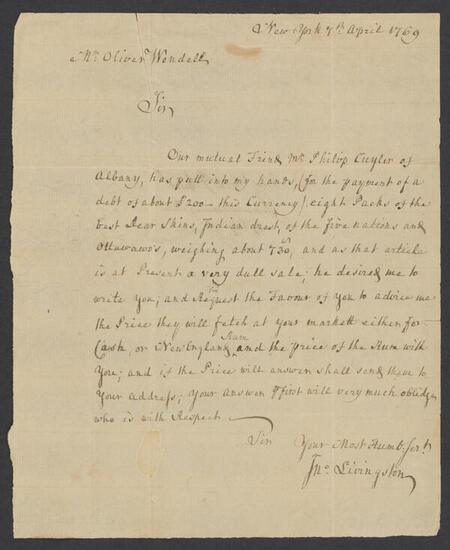 New York 7th April 1769
Mr. Oliver Wendell
Sir
Our mutual Frind Mr. Philip Cuyler of
Albany, has putt into my hands, (for the payment of a
debt of about £200 – this Currency) eight Packs of the
best Dear Skins, Indian drest, of the five nations and
Ottawawo's, weighing about 730, and as that article
is at Present a very dull sale; he desired me to
write you; and Request the Favour of you to advice me
the Price they will fetch at your markett either for
Cash, or New England Rum and the price of the Rum with
You; and if the Price will answer shall send them to
Your Address; Your Answer first will very much oblidge
who is with Respect
Sir Your Most Humb. Sert.
Jno. Livingston